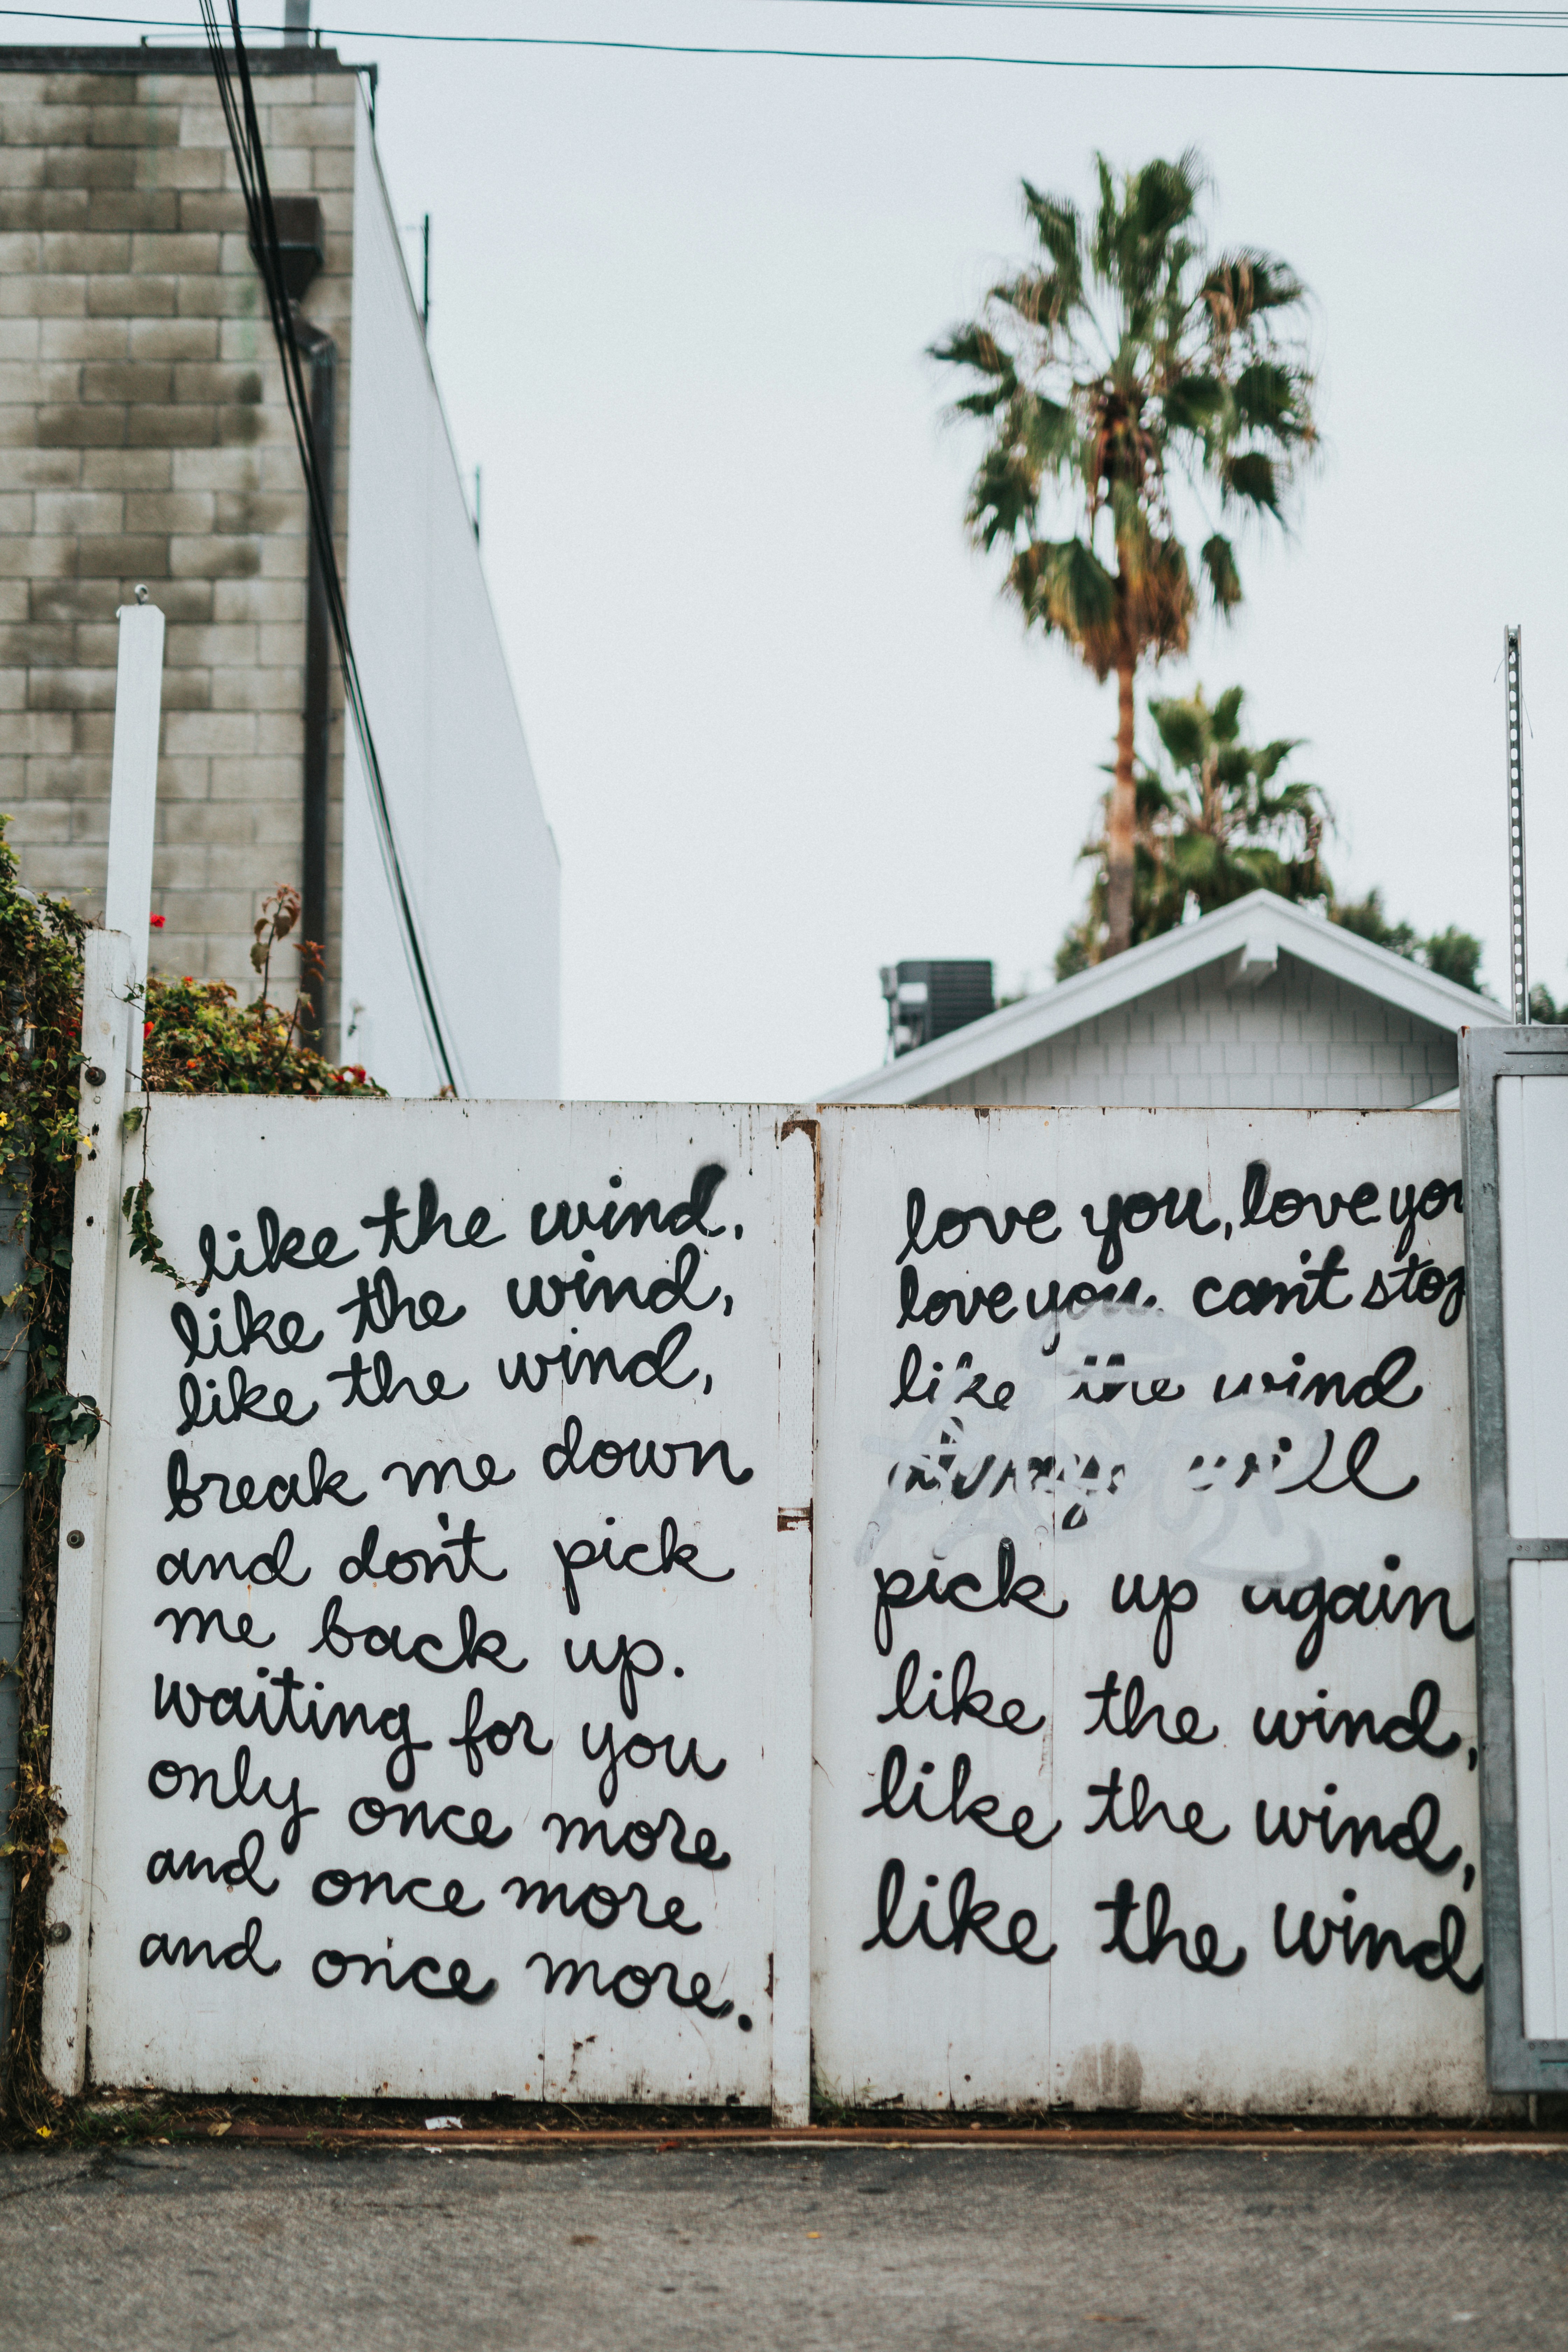 like the wind,
like the wind,
like the wind,
break me down
and don't pick
me back up.
waiting for you
only once more
and once more
and once more.
love you, love you
love you. can't stop
like the wind
always will
pick up again
like the wind,
like the wind,
like the wind